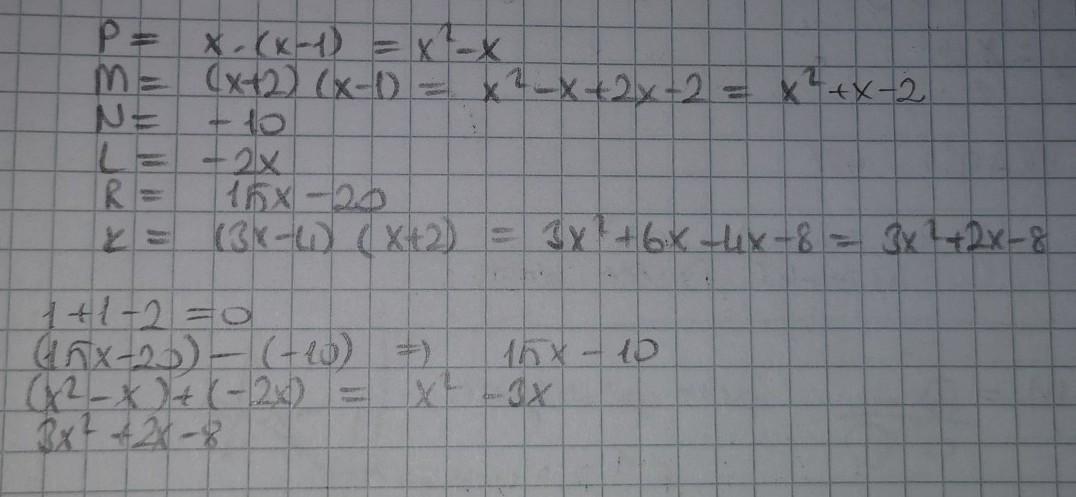 P = x·(x-1) = x²-x
M = (x+2)(x-1) = x²-x+2x-2 = x²+x-2
N = -10
L = -2x
R = 15x-20
K = (3x-4)(x+2) = 3x²+6x-4x-8 = 3x²+2x-8
1+1-2=0
(15x-20)-(-10) ⇒ 15x-10
(x²-x)+(-2x) = x²-3x
3x²+2x-8